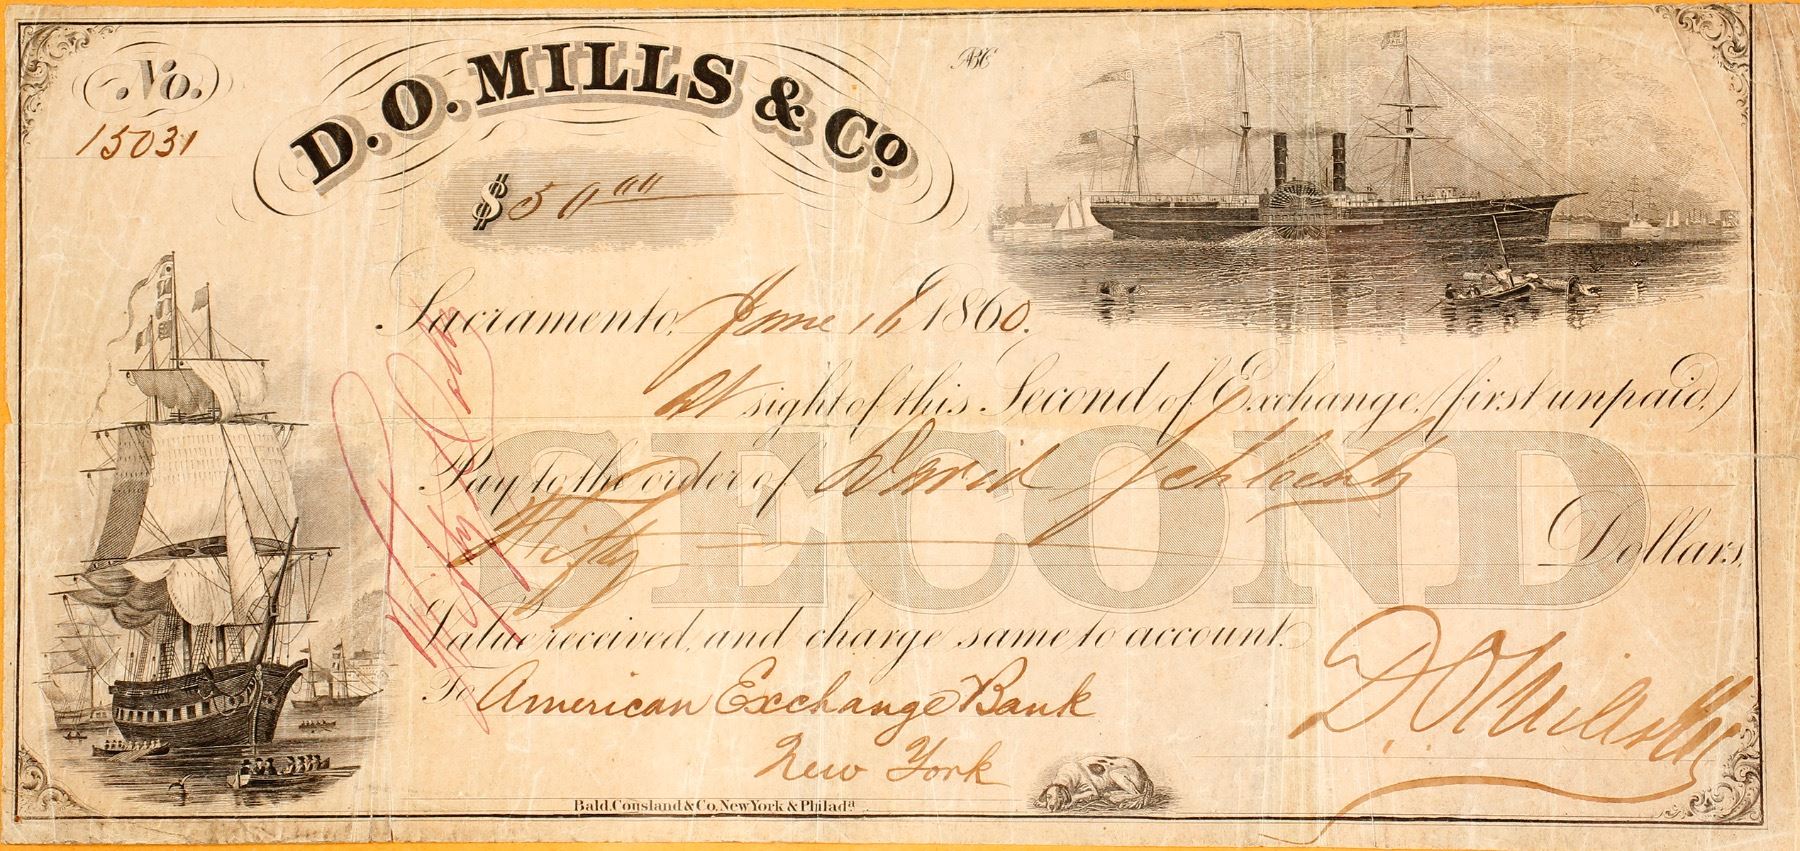 No.
15031
D. O. MILLS & Co.
$ 50 00
Sacramento, June 16 1860.
At sight of this Second of Exchange, (first unpaid,)
SECOND
Pay to the order of David
Fifty Dollars,
Value received, and charge same to account.
To American Exchange Bank
New York
D. O. Mills & Co
Fifty Dollars
Bald, Cousland & Co. New York & Philada.